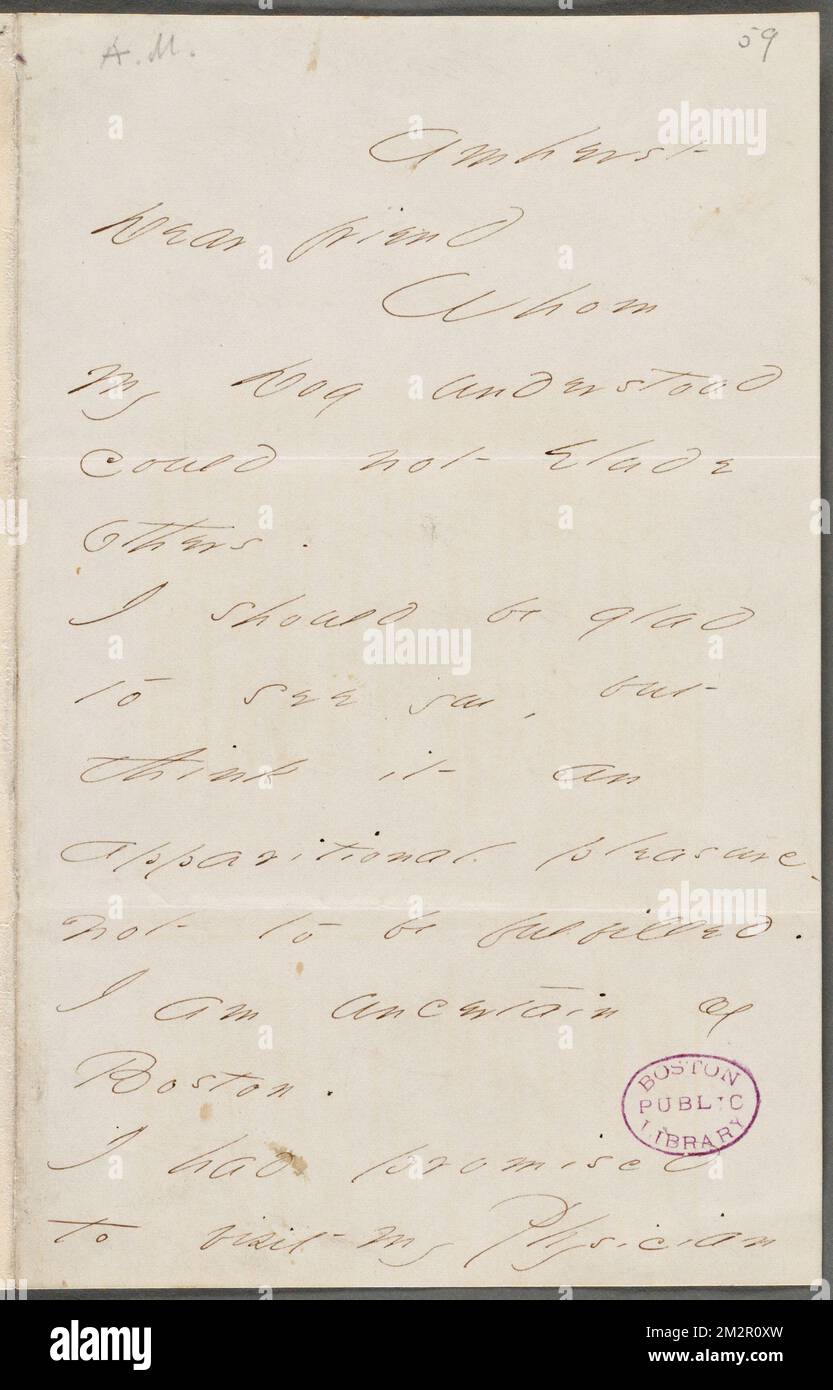 A.M.
59
Amherst
Dear friend
Whom
my Dog understood
could not elude
others.
I should be glad
to see you, but
think it an
apparitional pleasure,
not to be fulfilled.
I am uncertain of
Boston.
BOSTON
PUBLIC
LIBRARY
I had promised
to visit my Physician
a
alamy
alamy
Image ID: 2M2R0XW
www.alamy.com